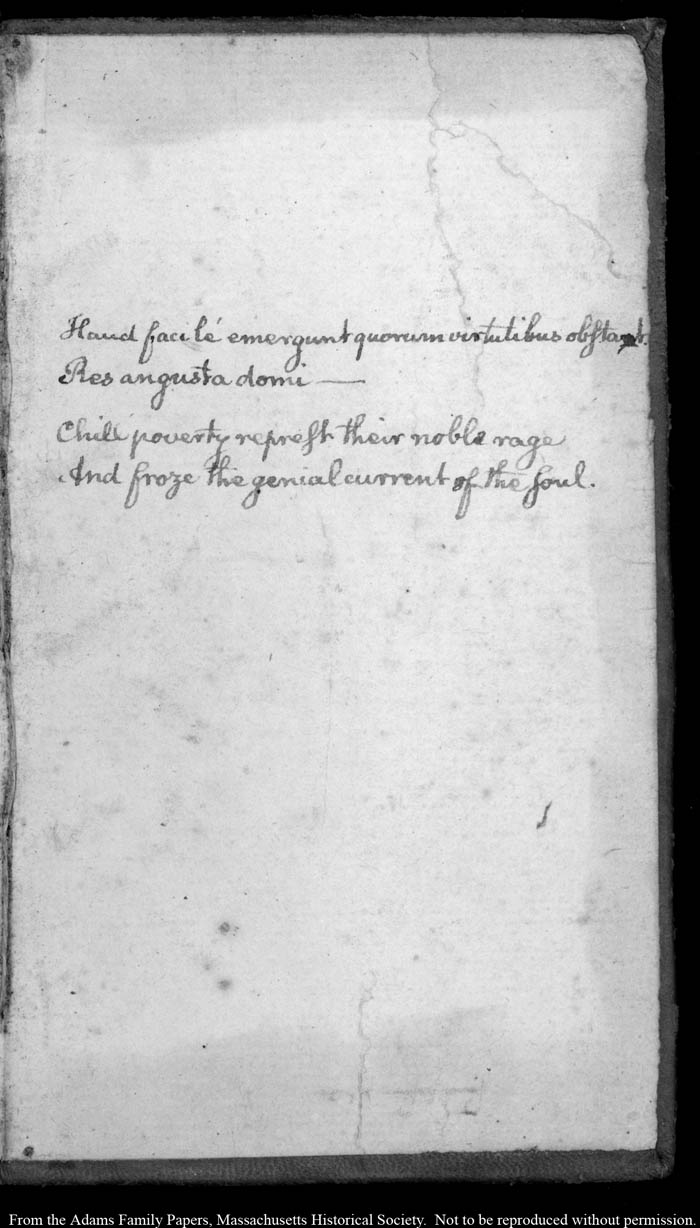 Haud facilé emergunt quorum virtutibus obstant.
Res angusta domi —
Chill poverty represt their noble rage
And froze the genial current of the soul.
From the Adams Family Papers, Massachusetts Historical Society. Not to be reproduced without permission.